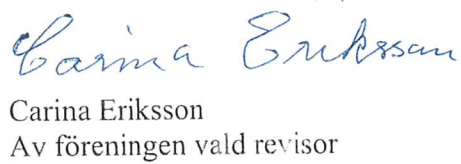 Carina Eriksson
Carina Eriksson
Av föreningen vald revisor